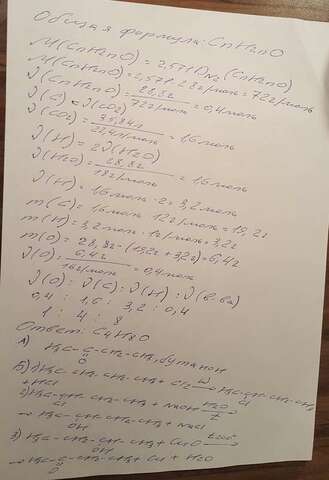 Общая формула: CnH2nO
M(CnH2nO) = 2,571 DN2 (CnH2nO)
M(CnH2nO) = 2,571 · 28 г/моль = 72 г/моль
ν(CnH2nO) = 28,8г / 72 г/моль = 0,4 моль
ν(C) = ν(CO2)
ν(CO2) = 35,84л / 22,4л/моль = 1,6 моль
ν(H) = 2ν(H2O)
ν(H2O) = 28,8г / 18г/моль = 1,6 моль
ν(H) = 1,6 моль · 2 = 3,2 моль
m(C) = 1,6 моль · 12г/моль = 19,2г
m(H) = 3,2 моль · 1г/моль = 3,2г
m(O) = 28,8г - (19,2г + 3,2г) = 6,4г
ν(O) = 6,4г / 16г/моль = 0,4 моль
ν(O) : ν(C) : ν(H) : ν(в-ва)
0,4 : 1,6 : 3,2 : 0,4
1 : 4 : 8
Ответ: C4H8O
А) H3C-C-CH2-CH3 бутанон
O
Б) 1) H3C-CH2-CH2-CH3 + Cl2 → H3C-CH-CH2-CH3
+ HCl
Cl
2) H3C-CH-CH2-CH3 + NaOH H2O
Cl
→ H3C-CH2-CH-CH3 + NaCl
OH
3) H3C-CH2-CH-CH3 + CuO
OH
→ H3C-C-CH2-CH3 + Cu + H2O
O